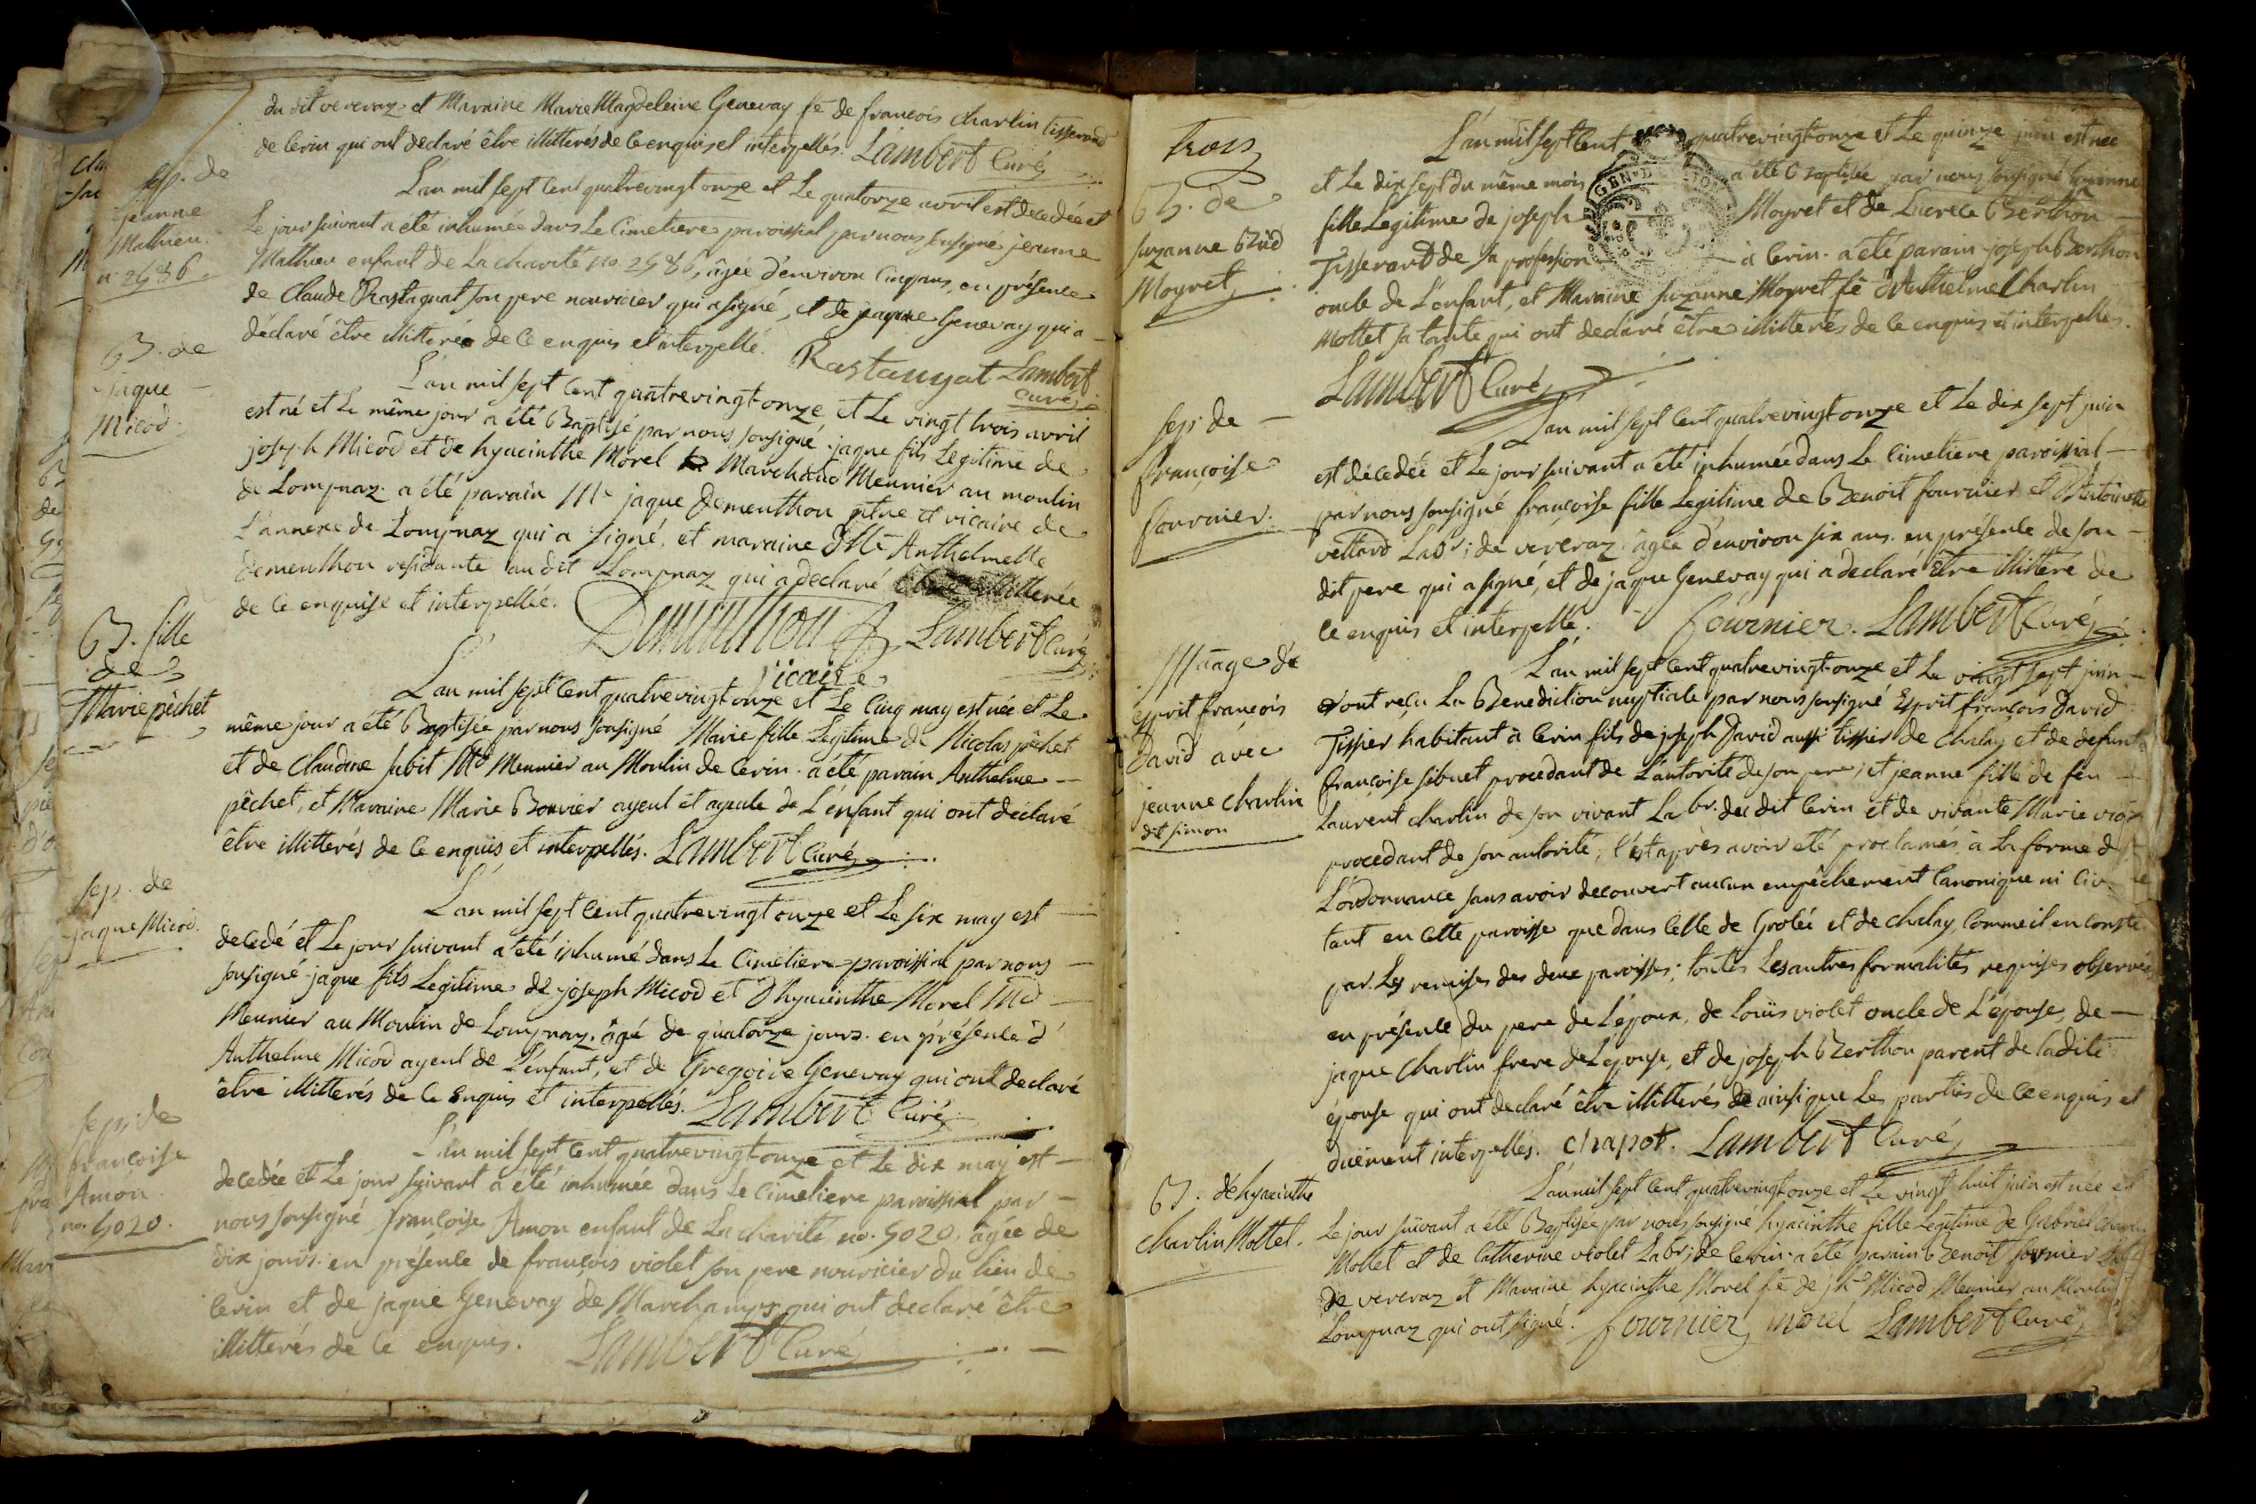 du dit vereraz et Maraine Marie Magdeleine Genevay fe de francois charlin tisserand
de Cerin qui ont declaré être illitterés de ce enquis et interpellés. Lambert Curé
sep. de
jeanne
Mathieu.
n°. 2986
L'an mil sept cent quatrevingt onze et Le quatorze avril est decedée et
Le jour suivant a été inhumée dans Le Cimetiere paroissial par nous soussigné jeanne
Mathieu enfant de La charité no. 2986, âgée d'environ cinq ans, en présence
de Claude Rastagnat son pere nouricier qui a signé, et de jaque Genevay qui a
déclaré être illitteré de ce enquis et interpellé. Rastanyat Lambert
Curé
B. de
jaque
Micod.
L'an mil sept cent quatrevingt-onze et Le vingt trois avril
est né et Le même jour a été Baptisé par nous sousigné jaque fils Legitime de
joseph Micod et de hyacinthe Morel Marchand Meunier au moulin
de Lompnaz. a été parain Mr jaque Dementhon ptre et vicaire de
L'annexe de Lompnaz qui a signé, et maraine Dlle Anthelmette
Dementhon residante au dit Lompnaz qui a declaré être illitterée
de ce enquise et interpellée. Dementhon Lambert Curé
Vicaire
B. fille
de
Marie pêchet
L'an mil sept cent quatrevingt onze et Le Cinq may est née et Le
même jour a été Baptisée par nous sousigné Marie fille Legitime de Nicolas pêchet
et de Claudine Subit Md Meunier au Moulin de Cerin. a été parain Anthelme
pêchet, et Maraine Marie Bouvier ayeul et ayeule de L'enfant qui ont déclaré
être illitterés de ce enquis et interpellés. Lambert Curé
sep. de
jaque Micod.
L'an mil sept cent quatrevingt onze et Le six may est
decedé et Le jour suivant a été inhumé dans Le Cimetiere paroissial par nous
sousigné jaque fils Legitime de joseph Micod et D'hyacinthe Morel Md
Meunier au Moulin de Lompnaz, âgé de quatorze jours. en présence d'
Anthelme Micod ayeul de L'enfant, et de Gregoire Genevay qui ont declaré
être illitterés de ce enquis et interpellés. Lambert Curé
sep. de
francoise
Amon
no. 5020.
L'an mil sept cent quatrevingt onze et Le dix may est
decedée et Le jour suivant a été inhumée dans Le cimetiere paroissial par
nous sousigné francoise Amon enfant de La charité no. 5020, âgée de
dix jours. en présence de francois violet son pere nouricier du lieu de
Cerin et de jaque Genevay de Marchamps qui ont declaré être
illitterés de ce enquis. Lambert Curé
trois
B. de
suzanne
Moyret
L'an mil sept cent quatrevingt-onze et Le quinze juin est née
et Le dix sept du même mois a été Baptisée par nous sousigné suzanne
fille Legitime de joseph Moyret et de Lucrece Berthon
Tisserant de sa profession à Cerin. a été parain joseph Berthon
oncle de L'enfant, et Maraine suzanne Moyret fe d'Anthelme Charlin
Mottet sa tante qui ont declaré être illitterés de ce enquis et interpellés.
Lambert Curé
sep. de
francoise
fournier.
L'an mil sept cent quatrevingt onze et Le dix sept juin
est décedée et Le jour suivant a été inhumée dans Le Cimetiere paroissial
par nous sousigné francoise fille Legitime de Benoit fournier et Antoinette
vettard Labr; de vereraz. âgée d'environ six ans. en présence de son
dit pere qui a signé, et de jaque Genevay qui a declaré être illitteré de
ce enquis et interpellé. fournier. Lambert Curé
Mariage de
esprit francois
David avec
jeanne charlin
dit simon
L'an mil sept cent quatrevingt-onze et Le vingt sept juin
ont reçu La Benediction nuptiale par nous sousigné Esprit françois David
Tissier habitant à Cerin fils de joseph David aussi tissier de chalay et de defunte
francoise sibuet procedant de L'autorité de son pere; et jeanne fille de feu
Laurent charlin de son vivant Labr. du dit Cerin et de vivante Marie violet
procedant de son autorité; c'est après avoir été proclamés à la forme de
L'ordonnance sans avoir decouvert aucun empêchement Canonique ni Civile
tant en cette paroisse que dans celle de Grolée et de chalay, comme il en conste
par Les remises des deux paroisses; toutes Les autres formalités requises observées
en présence du pere de L'époux, de Louis violet oncle de L'épouse, de
jaque Charlin frere de L'epouse, et de joseph Berthon parent de ladite
épouse qui ont declaré être illitterés ainsi que Les parties de ce enquis et
duëment interpellés. chapot. Lambert Curé
B. de hyacinthe
charlin Mottet.
L'an mil sept cent quatrevingt-onze et Le vingt huit juin est née et
Le jour suivant a été Baptisée par nous sousigné hyacinthe fille Legitime de Gabriel
Mottet et de Catherine violet Labr; de Cerin. a été parain Benoit fournier
de vereraz et Maraine hyacinthe Morel fe de jh Micod Meunier au Moulin
Lompnaz qui ont signé. fournier morel Lambert Curé